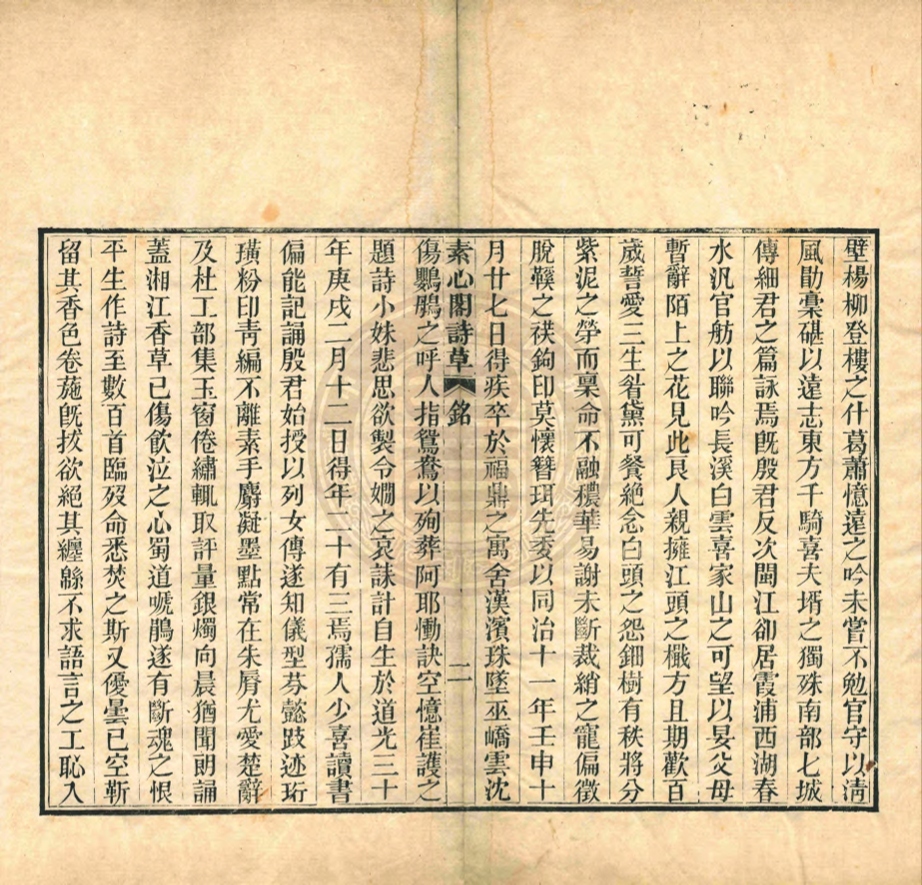 壁楊柳登樓之什葛蕭憶遠之吟未嘗不勉官守以淸
風勛稾碪以遠志東方千騎喜夫壻之獨殊南部七城
傳細君之篇詠焉旣殷君反次閩江卻居霞浦西湖春
水汎官舫以聯吟長溪白雲喜家山之可望以晏父母
暫辭陌上之花見此良人親擁江頭之檝方且期歡百
歲誓愛三生眉黛可餐絶念白頭之怨鈿樹有秩將分
紫泥之榮而稟命不融穠華易謝未斷裁綃之寵偏徵
脫鞵之祓鉤印莫懷簪珥先委以同治十一年壬申十
月廿七日得疾卒於福鼎之寓舍漢濱珠墜巫嶠雲沈
素心閣詩草 銘 二
傷鸚鵑之呼人指鴛鴦以殉葬阿耶慟訣空憶崔護之
題詩小妹悲思欲製令嫺之哀誄計自生於道光三十
年庚戌二月十二日得年二十有三焉孺人少喜讀書
偏能記誦殷君始授以列女傳遂知儀型芬懿跂迹珩
璜粉印靑編不離素手麝凝墨點常在朱脣尤愛楚辭
及杜工部集玉窗倦繡輒取評量銀燭向晨猶聞朗誦
蓋湘江香草已傷飮泣之心蜀道嗁鵑遂有斷魂之恨
平生作詩至數百首臨歿命悉焚之斯又優曇已空靳
留其香色卷葹旣拔欲絕其纏緜不求語言之工恥入